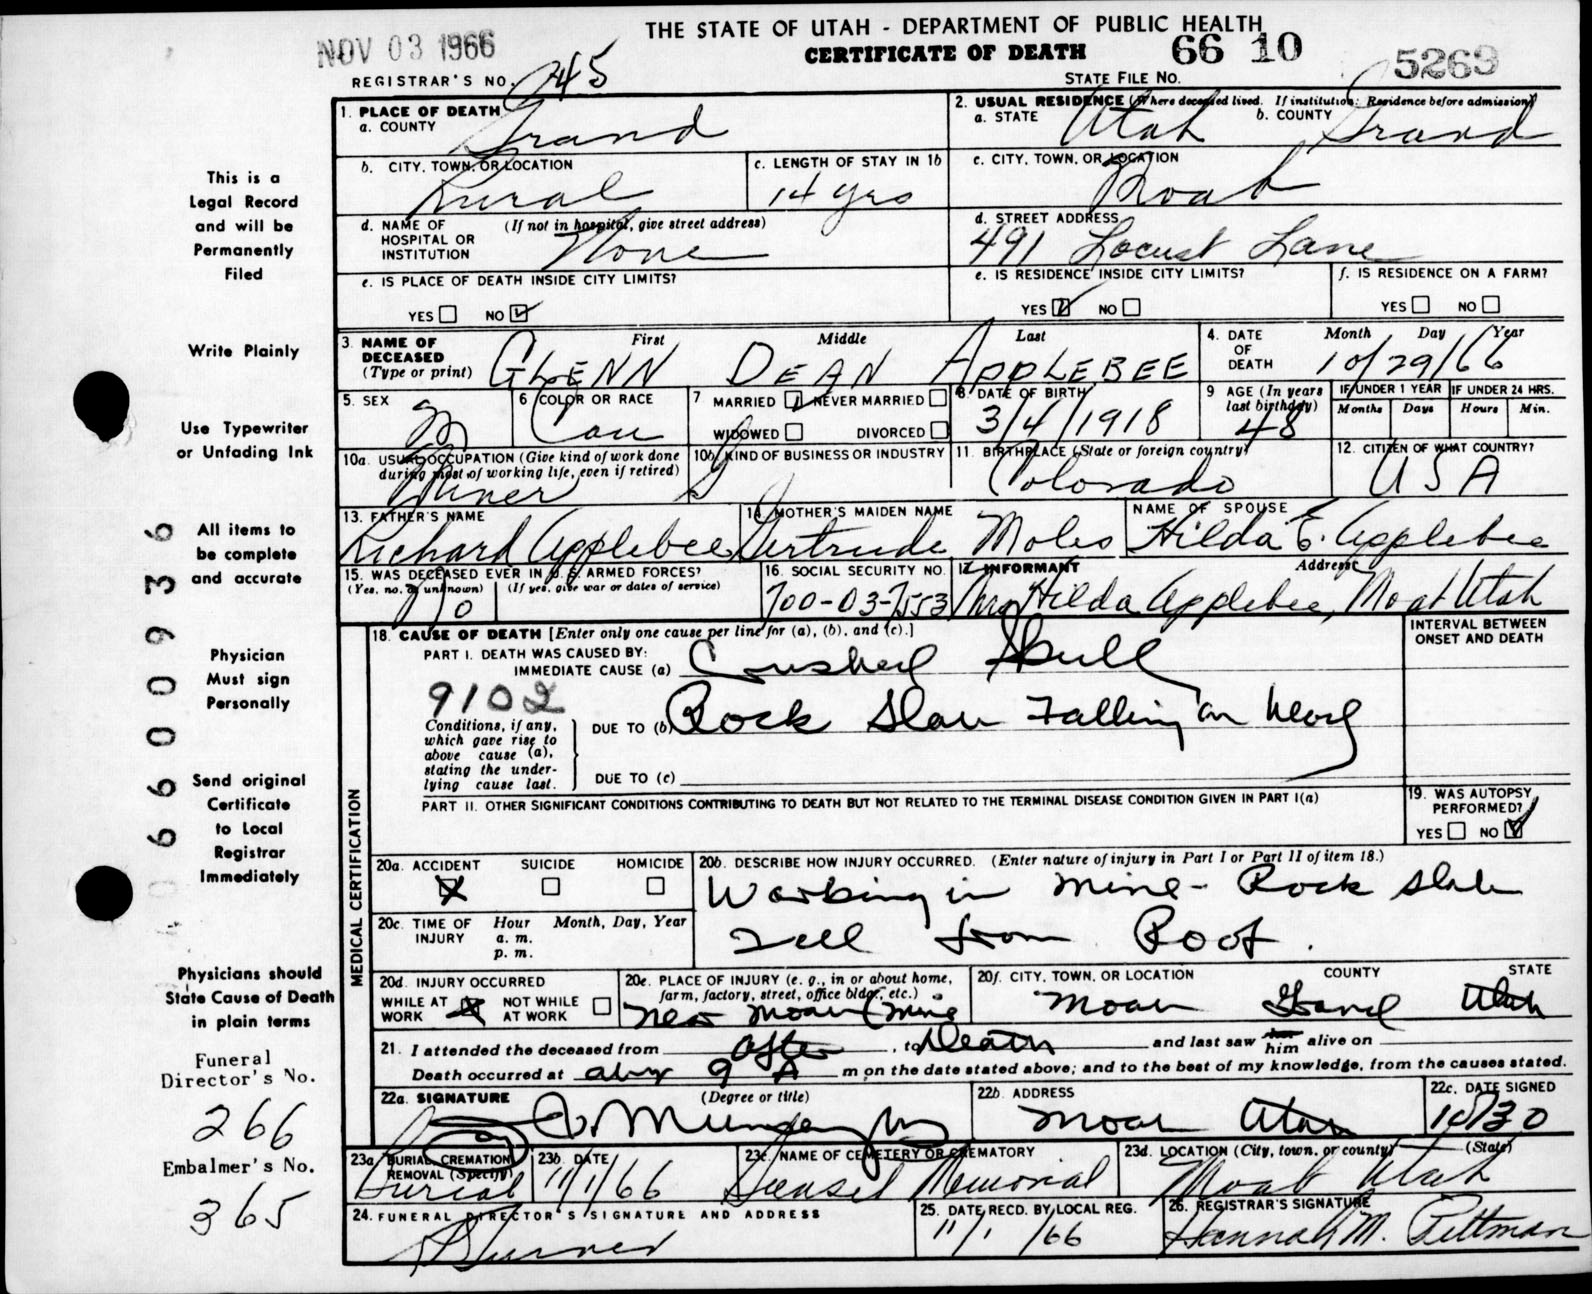 THE STATE OF UTAH - DEPARTMENT OF PUBLIC HEALTH
NOV 03 1966
CERTIFICATE OF DEATH 66 10 5263
REGISTRAR'S NO. 45 STATE FILE NO.
1. PLACE OF DEATH
a. COUNTY Grand
2. USUAL RESIDENCE (Where deceased lived. If institution: Residence before admission)
a. STATE Utah b. COUNTY Grand
b. CITY, TOWN, OR LOCATION Rural
c. LENGTH OF STAY IN 1b 14 yrs
c. CITY, TOWN, OR LOCATION Moab
d. NAME OF HOSPITAL OR INSTITUTION (If not in hospital, give street address) None
d. STREET ADDRESS 491 Locust Lane
e. IS PLACE OF DEATH INSIDE CITY LIMITS?
YES NO
e. IS RESIDENCE INSIDE CITY LIMITS?
YES NO
f. IS RESIDENCE ON A FARM?
YES NO
3. NAME OF DECEASED (Type or print) First Middle Last
GLENN DEAN APPLEBEE
4. DATE OF DEATH Month Day Year
10/29/66
5. SEX M
6 COLOR OR RACE Cau
7 MARRIED NEVER MARRIED
WIDOWED DIVORCED
8. DATE OF BIRTH 3/4/1918
9 AGE (In years last birthday) 48
IF UNDER 1 YEAR IF UNDER 24 HRS.
Months Days Hours Min.
10a. USUAL OCCUPATION (Give kind of work done during most of working life, even if retired)
Miner
10b. KIND OF BUSINESS OR INDUSTRY
11. BIRTHPLACE (State or foreign country) Colorado
12. CITIZEN OF WHAT COUNTRY? USA
13. FATHER'S NAME Richard Applebee
14. MOTHER'S MAIDEN NAME Gertrude Moles
NAME OF SPOUSE Hilda E. Applebee
15. WAS DECEASED EVER IN U.S. ARMED FORCES?
(Yes, no, or unknown) (If yes, give war or dates of service)
no
16. SOCIAL SECURITY NO. 700-03-7553
17. INFORMANT Address
Mrs Hilda Applebee, Moab Utah
18. CAUSE OF DEATH [Enter only one cause per line for (a), (b), and (c).]
INTERVAL BETWEEN ONSET AND DEATH
PART I. DEATH WAS CAUSED BY:
IMMEDIATE CAUSE (a) Crushed Skull
9102
Conditions, if any, which gave rise to above cause (a), stating the underlying cause last.
DUE TO (b) Rock Slab Falling on head
DUE TO (c)
PART II. OTHER SIGNIFICANT CONDITIONS CONTRIBUTING TO DEATH BUT NOT RELATED TO THE TERMINAL DISEASE CONDITION GIVEN IN PART I(a)
19. WAS AUTOPSY PERFORMED?
YES NO
MEDICAL CERTIFICATION
20a. ACCIDENT SUICIDE HOMICIDE
20b. DESCRIBE HOW INJURY OCCURRED. (Enter nature of injury in Part I or Part II of item 18.)
Working in mine - Rock slab
fell from Roof.
20c. TIME OF INJURY Hour Month, Day, Year
a. m.
p. m.
20d. INJURY OCCURRED
WHILE AT WORK NOT WHILE AT WORK
20e. PLACE OF INJURY (e. g., in or about home, farm, factory, street, office bldg., etc.)
near Moab (mine
20f. CITY, TOWN, OR LOCATION COUNTY STATE
Moab Grand Utah
21. I attended the deceased from after, to Death and last saw him alive on
Death occurred at abt 9 A m., on the date stated above; and to the best of my knowledge, from the causes stated.
22a. SIGNATURE (Degree or title)
22b. ADDRESS Moab Utah
22c. DATE SIGNED 10/30
23a. BURIAL, CREMATION REMOVAL (Specify) Burial
23b. DATE 11/1/66
23c. NAME OF CEMETERY OR CREMATORY Sunset Memorial
23d. LOCATION (City, town, or county) (State)
Moab Utah
24. FUNERAL DIRECTOR'S SIGNATURE AND ADDRESS
25. DATE RECD. BY LOCAL REG. 11/1/66
26. REGISTRAR'S SIGNATURE
Hannah M. Pittman
This is a
Legal Record
and will be
Permanently
Filed
Write Plainly
Use Typewriter
or Unfading Ink
All items to
be complete
and accurate
Physician
Must sign
Personally
Send original
Certificate
to Local
Registrar
Immediately
Physicians should
State Cause of Death
in plain terms
Funeral
Director's No.
266
Embalmer's No.
365